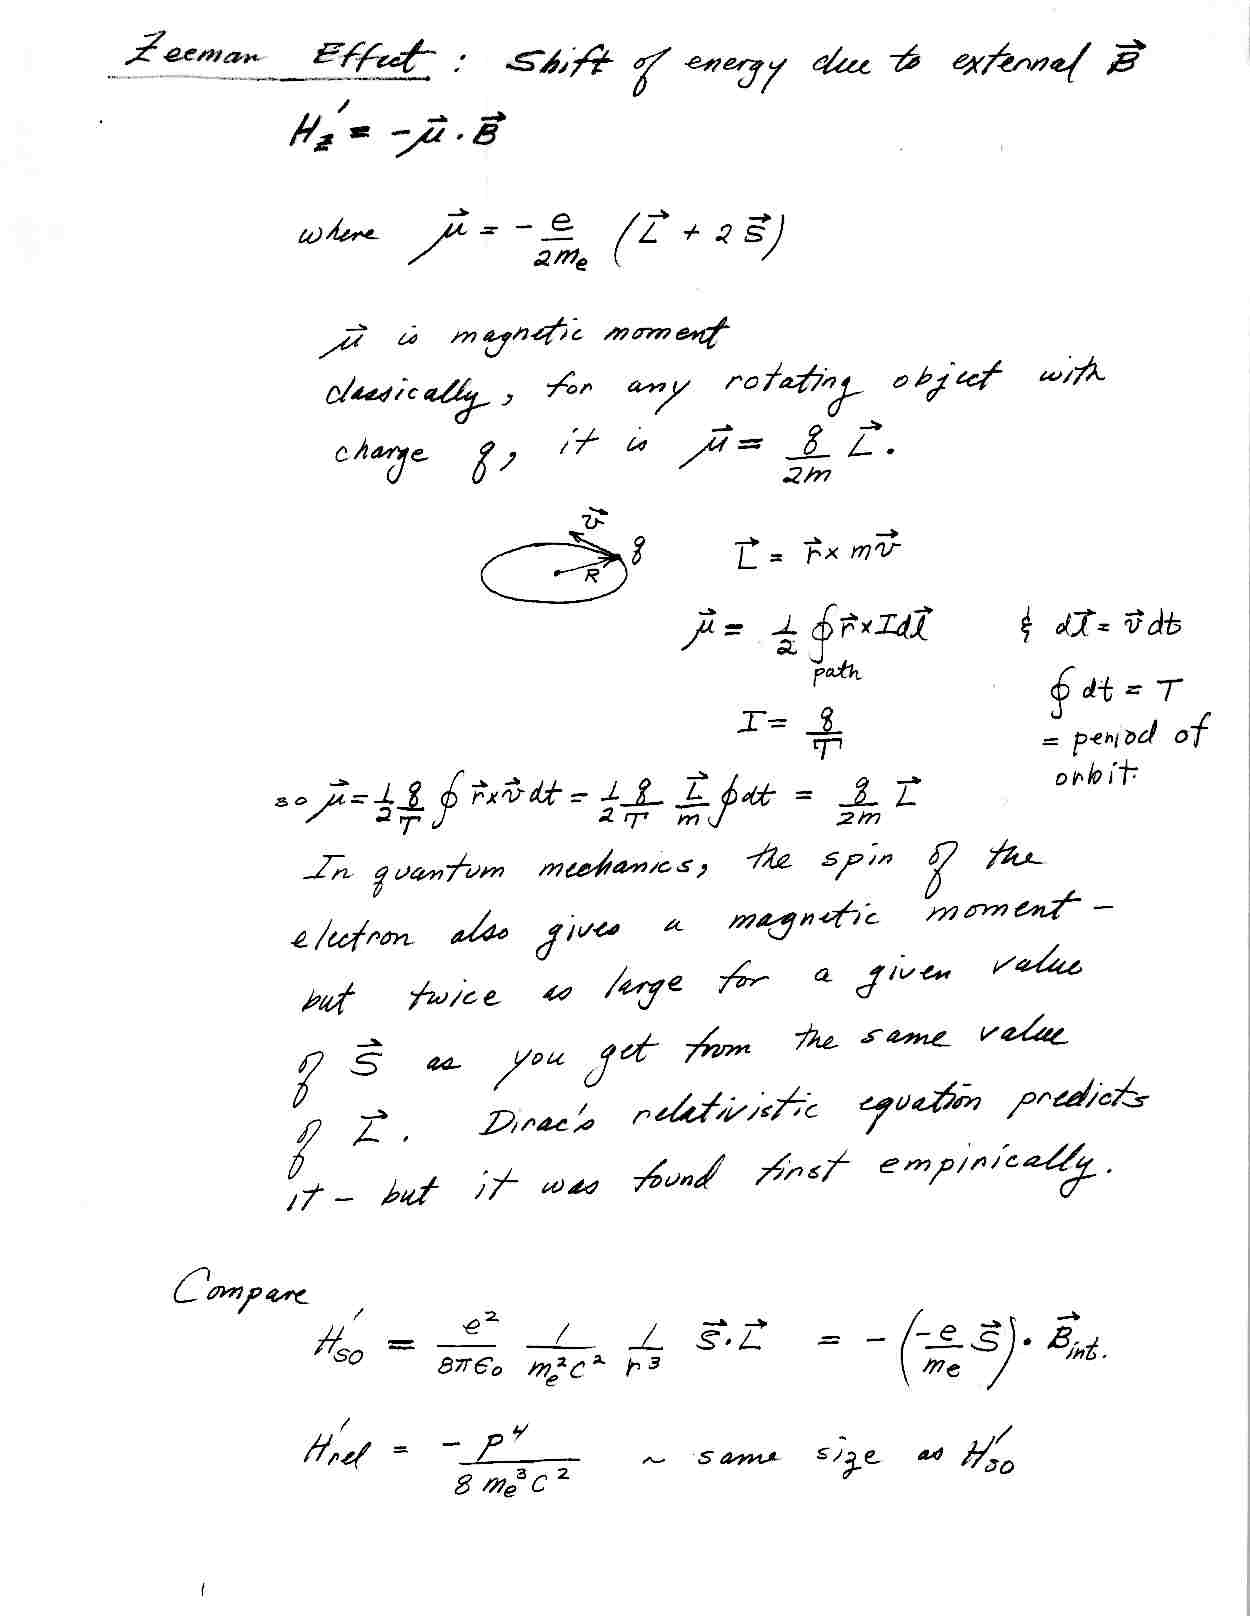 Zeeman Effect : Shift of energy due to external B⃗
H_z' = -μ⃗ · B⃗
where μ⃗ = - e/2mₑ (L⃗ + 2 S⃗)
μ⃗ is magnetic moment
classically, for any rotating object with
charge q, it is μ⃗ = q/2m L⃗.
v⃗ q R
L⃗ = r⃗ × mv⃗
μ⃗ = 1/2 ∮ r⃗ × I dl⃗ & dl⃗ = v⃗ dt
path
∮ dt = T
I = q/T
= period of
orbit.
so μ⃗ = 1/2 q/T ∮ r⃗ × v⃗ dt = 1/2 q/T L⃗/m ∮ dt = q/2m L⃗
In quantum mechanics, the spin of the
electron also gives a magnetic moment –
but twice as large for a given value
of S⃗ as you get from the same value
of L⃗. Dirac's relativistic equation predicts
it – but it was found first empirically.
Compare
H'_SO = e²/8πε₀ 1/mₑ²c² 1/r³ S⃗·L⃗ = - (-e/mₑ S⃗) · B⃗_int.
H'_rel = -p⁴/8 mₑ³c² ~ same size as H'_SO